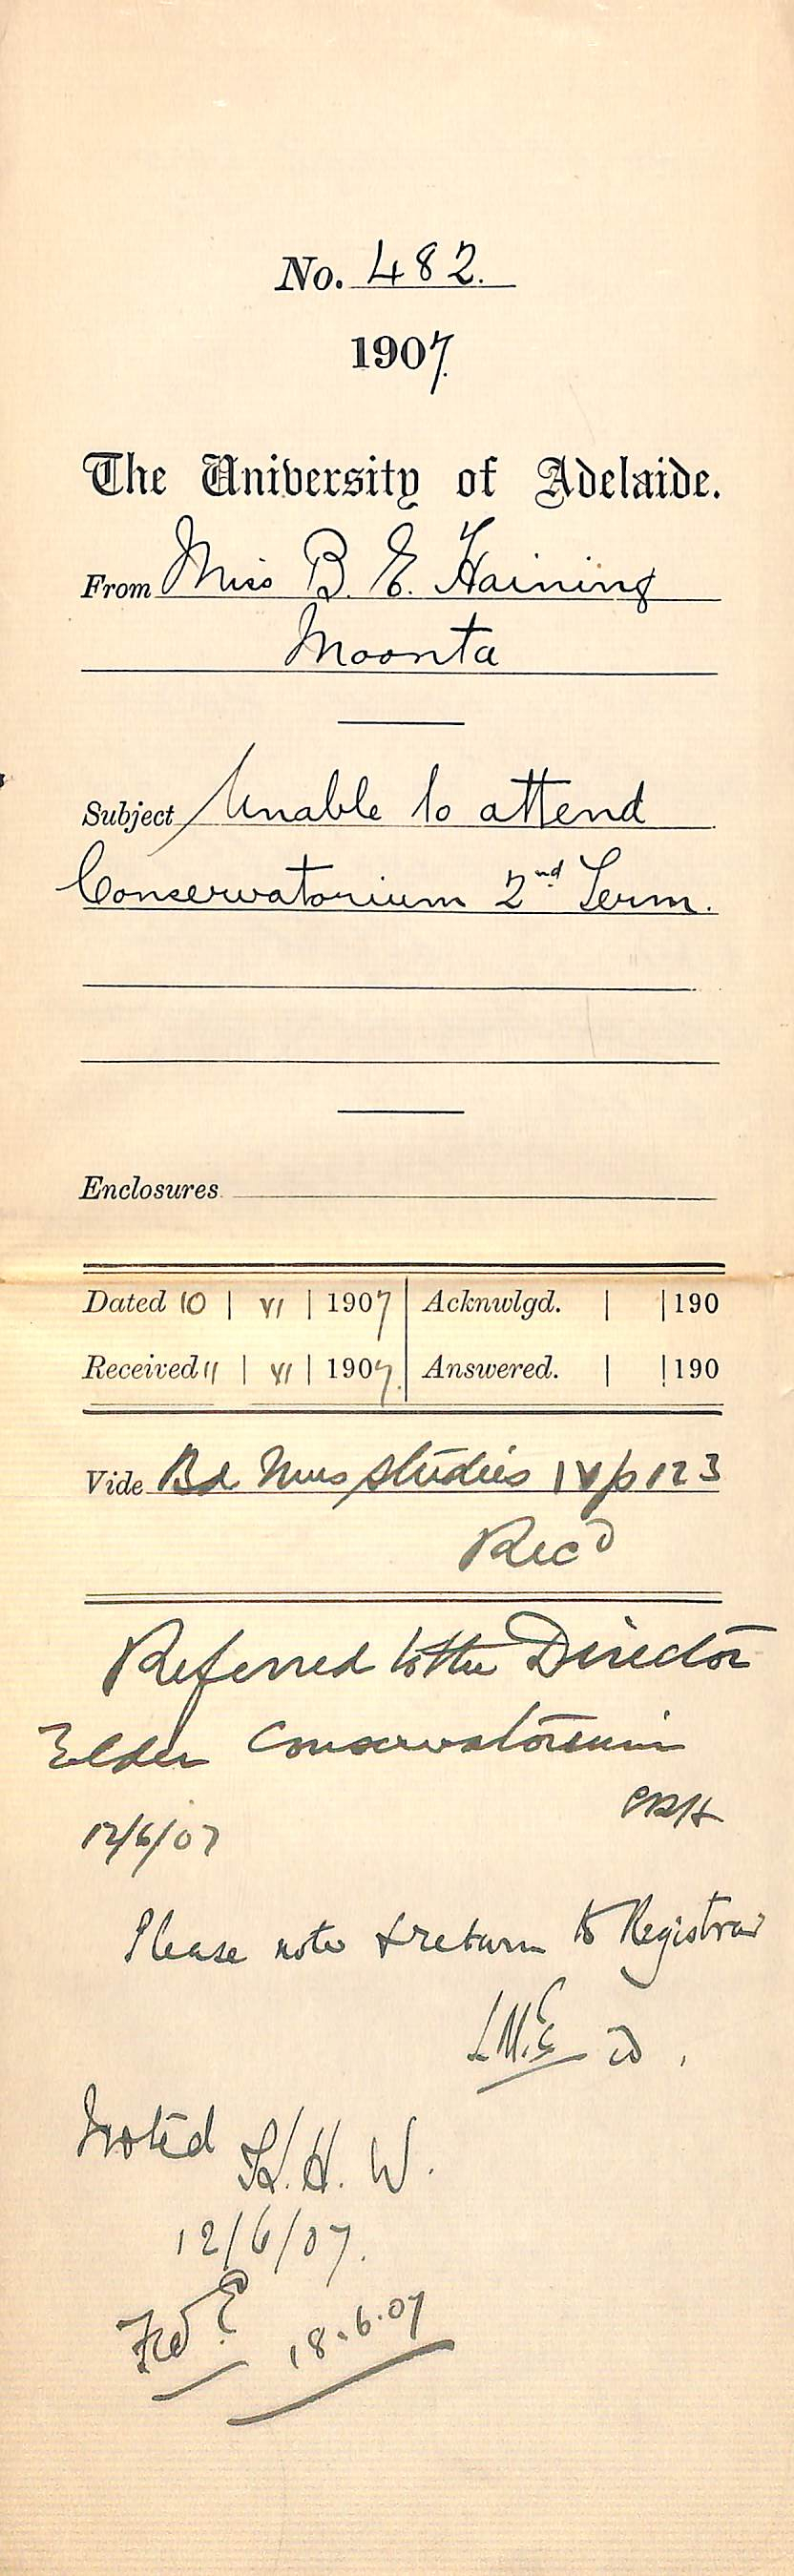 No. 482.
1907.
The University of Adelaide.
From Miss B. E. Haining
Moonta
Subject Unable to attend
Conservatorium 2nd Term.
Enclosures
Dated 10 | VI | 1907 | Acknwlgd. | | 190
Received 11 | VI | 1907. | Answered. | | 190
Vide Bd Mus Studies IV p 123
Recd
Referred to the Director
Elder Conservatorium
CRH
12/6/07
Please note & return to Registrar
Noted H. H. W.
12/6/07.
18.6.07